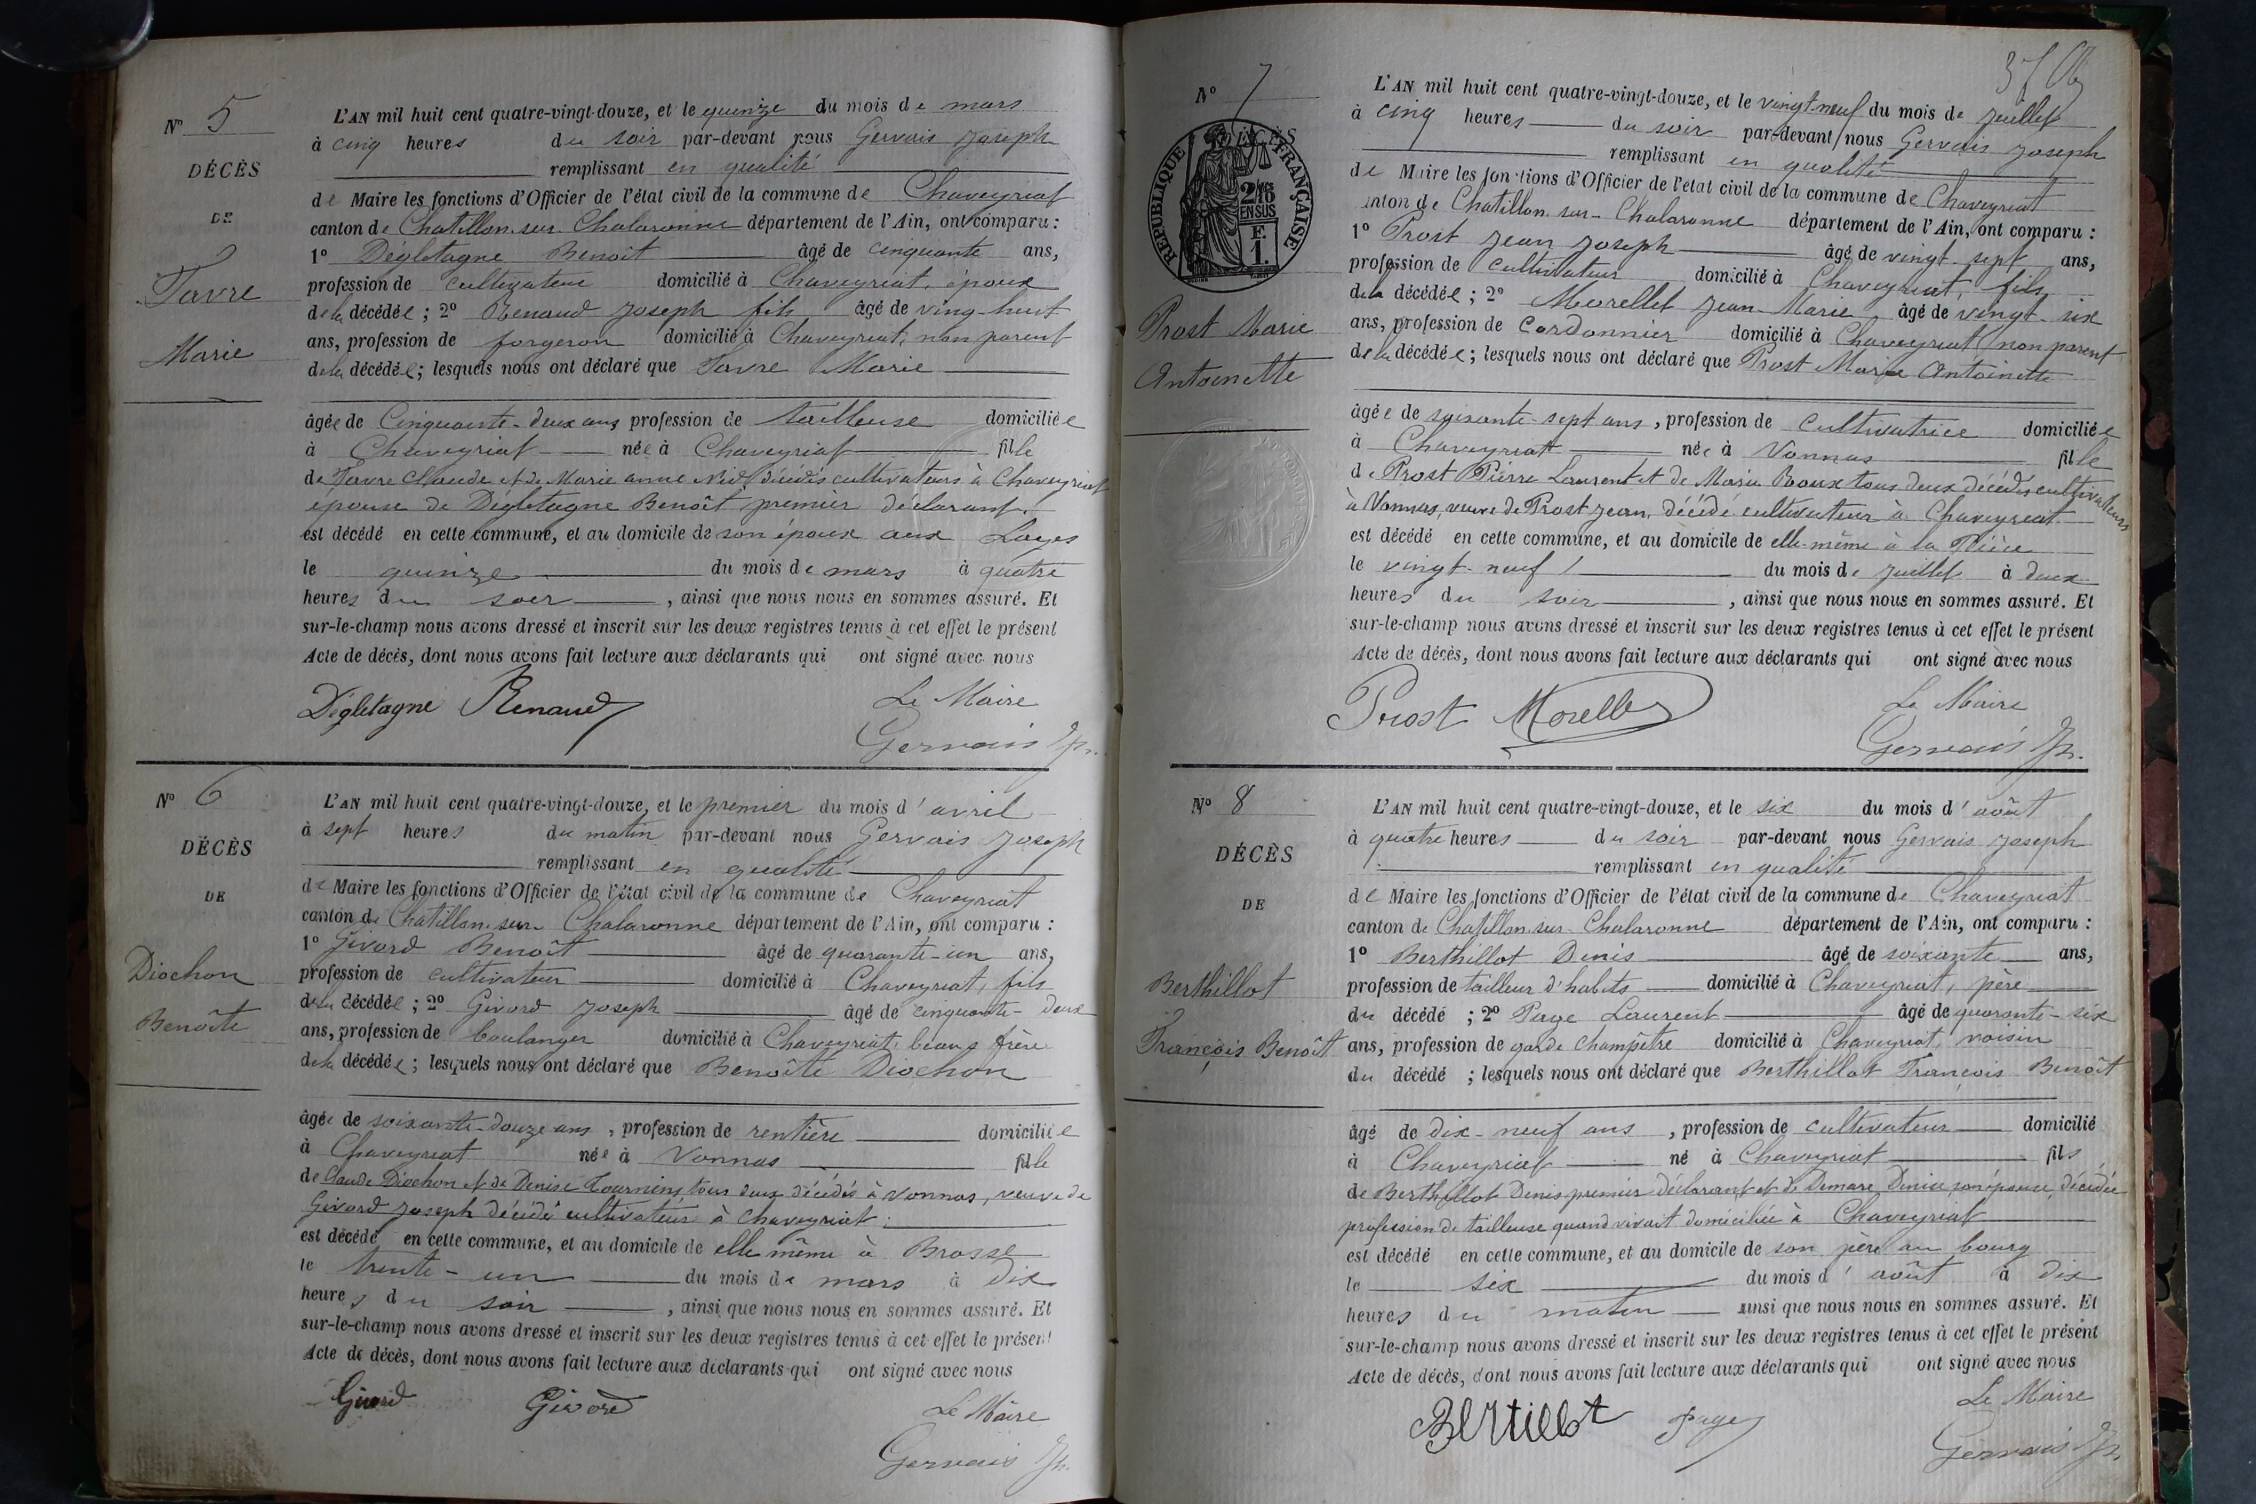 N° 5
DÉCÈS
DE
Favre
Marie
L'AN mil huit cent quatre-vingt-douze, et le quinze du mois de mars
à cinq heures du soir par-devant nous Gervais Joseph
remplissant en qualité
de Maire les fonctions d'Officier de l'état civil de la commune de Chaveyriat
canton de Chatillon-sur-Chalaronne département de l'Ain, ont comparu :
1° Dégletagne Benoît âgé de cinquante ans,
profession de cultivateur domicilié à Chaveyriat, époux
de la décédée ; 2° Renaud Joseph fils âgé de ving-huit
ans, profession de forgeron domicilié à Chaveyriat, non parent
de la décédée ; lesquels nous ont déclaré que Favre Marie
âgée de Cinquante-deux ans profession de tailleuse domiciliée
à Chaveyriat née à Chaveyriat fille
de Favre Claude et de Marie anne décédés cultivateurs à Chaveyriat
épouse de Dégletagne Benoît premier déclarant.
est décédé en cette commune, et au domicile de son époux aux Loyes
le quinze du mois de mars à quatre
heures du soir, ainsi que nous nous en sommes assuré. Et
sur-le-champ nous avons dressé et inscrit sur les deux registres tenus à cet effet le présent
Acte de décès, dont nous avons fait lecture aux déclarants qui ont signé avec nous
Dégletagne Renaud Le Maire
Gervais Jh.
N° 6
DÉCÈS
DE
Diochon
Benoîte
L'AN mil huit cent quatre-vingt-douze, et le premier du mois d'avril
à sept heures du matin par-devant nous Gervais Joseph
remplissant en qualité
de Maire les fonctions d'Officier de l'état civil de la commune de Chaveyriat
canton de Chatillon-sur-Chalaronne département de l'Ain, ont comparu :
1° Givord Benoît âgé de quarante-un ans,
profession de cultivateur domicilié à Chaveyriat, fils
de la décédée ; 2° Givord Joseph âgé de cinquante-deux
ans, profession de boulanger domicilié à Chaveyriat, beau frère
de la décédée ; lesquels nous ont déclaré que Benoîte Diochon
âgée de soixante-douze ans, profession de rentière domiciliée
à Chaveyriat née à Vonnas fille
de Claude Diochon et de Denise tous deux décédés à Vonnas, veuve de
Givord Joseph décédé cultivateur à Chaveyriat.
est décédé en cette commune, et au domicile de elle même à Brosse
le trente-un du mois de mars à dix
heures du soir, ainsi que nous nous en sommes assuré. Et
sur-le-champ nous avons dressé et inscrit sur les deux registres tenus à cet effet le présent
Acte de décès, dont nous avons fait lecture aux déclarants qui ont signé avec nous
Givord Givord Le Maire
Gervais Jh.
N° 7
DÉCÈS
RÉPUBLIQUE FRANÇAISE
2/10 EN SUS
F. 1.
Prost Marie
Antoinette
L'AN mil huit cent quatre-vingt-douze, et le vingt-neuf du mois de juillet
à cinq heures du soir par-devant nous Gervais Joseph
remplissant en qualité
de Maire les fonctions d'Officier de l'état civil de la commune de Chaveyriat
canton de Chatillon-sur-Chalaronne département de l'Ain, ont comparu :
1° Prost Jean Joseph âgé de vingt-sept ans,
profession de cultivateur domicilié à Chaveyriat, fils
de la décédée ; 2° Morellet Jean-Marie âgé de vingt-six
ans, profession de Cordonnier domicilié à Chaveyriat, non parent
de la décédée ; lesquels nous ont déclaré que Prost Marie Antoinette
âgée de soixante-sept ans, profession de cultivatrice domiciliée
à Chaveyriat née à Vonnas fille
de Prost Pierre Laurent et de Marie Roux tous deux décédés cultivateurs
à Vonnas, veuve de Prost Jean, décédé cultivateur à Chaveyriat
est décédé en cette commune, et au domicile de elle-même à la
le vingt-neuf du mois de juillet à deux
heures du soir, ainsi que nous nous en sommes assuré. Et
sur-le-champ nous avons dressé et inscrit sur les deux registres tenus à cet effet le présent
Acte de décès, dont nous avons fait lecture aux déclarants qui ont signé avec nous
Prost Morellet Le Maire
Gervais Jh.
N° 8
DÉCÈS
DE
Berthillot
François Benoît
L'AN mil huit cent quatre-vingt-douze, et le six du mois d'août
à quatre heures du soir par-devant nous Gervais Joseph
remplissant en qualité
de Maire les fonctions d'Officier de l'état civil de la commune de Chaveyriat
canton de Chatillon-sur-Chalaronne département de l'Ain, ont comparu :
1° Berthillot Denis âgé de soixante ans,
profession de tailleur d'habits domicilié à Chaveyriat, père
du décédé ; 2° Page Laurent âgé de quarante-six
ans, profession de garde champêtre domicilié à Chaveyriat, voisin
du décédé ; lesquels nous ont déclaré que Berthillot François Benoît
âgé de dix-neuf ans, profession de cultivateur domicilié
à Chaveyriat né à Chaveyriat fils
de Berthillot Denis premier déclarant et de Demare Denise son épouse, décédée
profession de tailleuse quand vivait domiciliée à Chaveyriat
est décédé en cette commune, et au domicile de son père au bourg
le six du mois d'août à dix
heures du matin ainsi que nous nous en sommes assuré. Et
sur-le-champ nous avons dressé et inscrit sur les deux registres tenus à cet effet le présent
Acte de décès, dont nous avons fait lecture aux déclarants qui ont signé avec nous
Bertillot Page Le Maire
Gervais Jh.